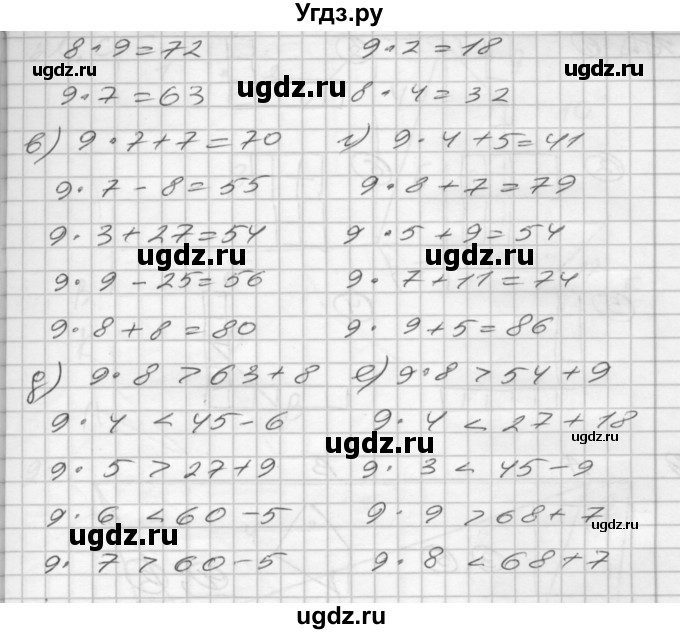 Угдз.ру
8·9=72 9·2=18
ugdz.ru ugdz.ru ugdz.ru
9·7=63 8·4=32
в) 9·7+7=70 г) 9·4+5=41
9·7-8=55 9·8+7=79
9·3+27=54 9·5+9=54
ugdz.ru ugdz.ru
9·9-25=56 9·7+11=74
9·8+8=80 9·9+5=86
д) 9·8>63+8 е) 9·8>54+9
9·4<45-6 9·4<27+18
ugdz.ru ugdz.ru
9·5>27+9 9·3<45-9
9·6<60-5 9·9>68+7
ugdz.ru ugdz.ru
9·7>60-5 9·8<68+7
ugdz.ru